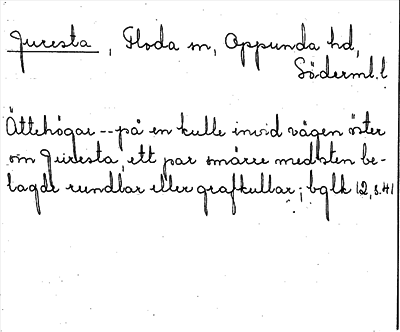 Juresta, Floda sn, Oppunda hd,
Söderml.l
Ättehögar -- på en kulle invid vägen öster
om Juresta, ett par smärre med sten be-
lagde rundlar eller grafkullar; bglk 12, s.41